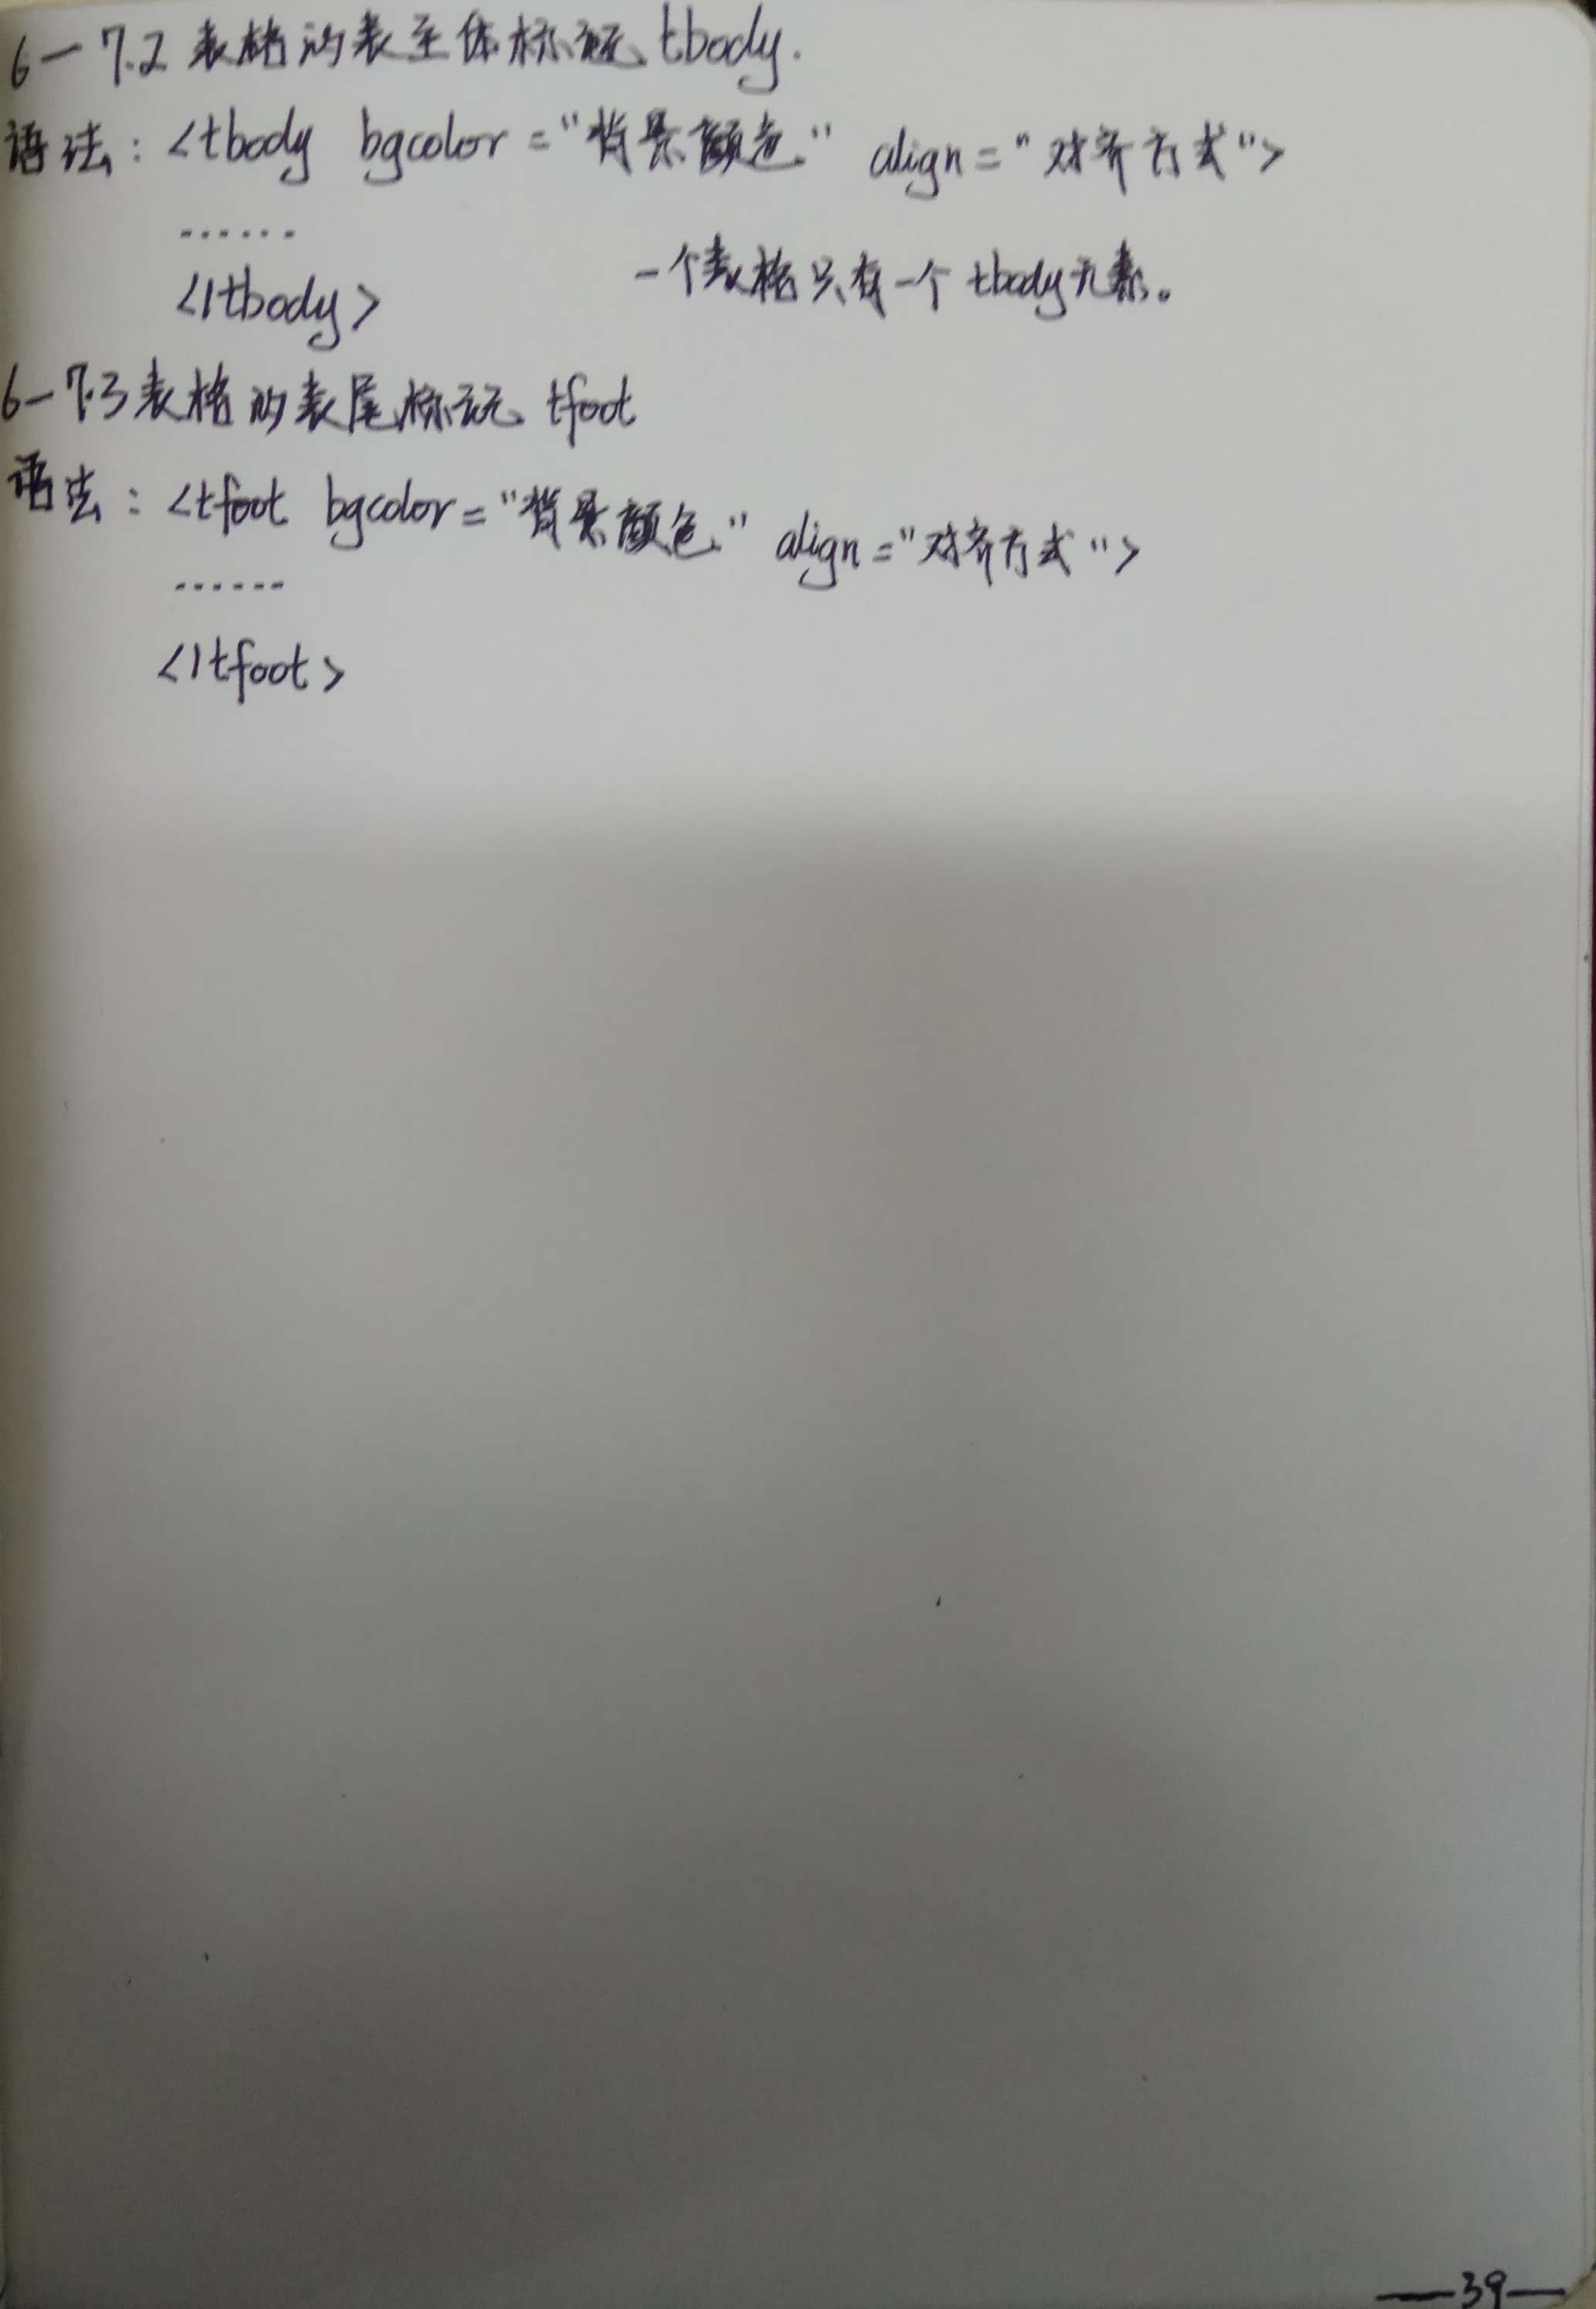 6-7.2 表格的表主体标记 tbody.
语法：<tbody bgcolor="背景颜色" align="对齐方式">
......
</tbody> 一个表格只有一个 tbody元素。
6-7.3 表格的表尾标记 tfoot
语法：<tfoot bgcolor="背景颜色" align="对齐方式">
......
</tfoot>
—39—